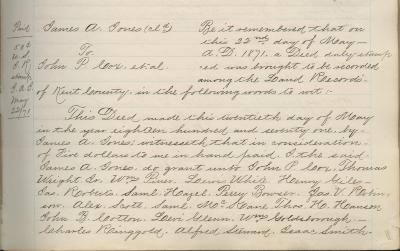 Paid
50¢
U.S.
I.R.
stamp
J.A.J.
May
22/71
James A. Jones (cl'd)
To
John P. Cox, et. al.
Be it remembered that on
this 22nd day of May
A.D. 1871, a Deed duly stamp
ed was brought to be recorded
among the Land Records
of Kent County, in the following words to wit:
This Deed made this twentieth day of May
in the year eighteen hundred and seventy one, by
James A. Jones: witnesseth that in consideration
of Five dollars to me in hand paid. I the said
James A. Jones, do grant unto John P. Cox, Thomas
Wright Sr. Wm Piner. Lewis White Henry Miles
Jas. Roberts. Saml. Hazel. Perry Bowser. Jas. H. Robin,
son, Alex. Scott. Saml. Thos. H. Hanson
John B. Cotton. Levi Glenn. Wm Goldsborough
Charles Ringgold. Alfred Steward. Isaac Smith